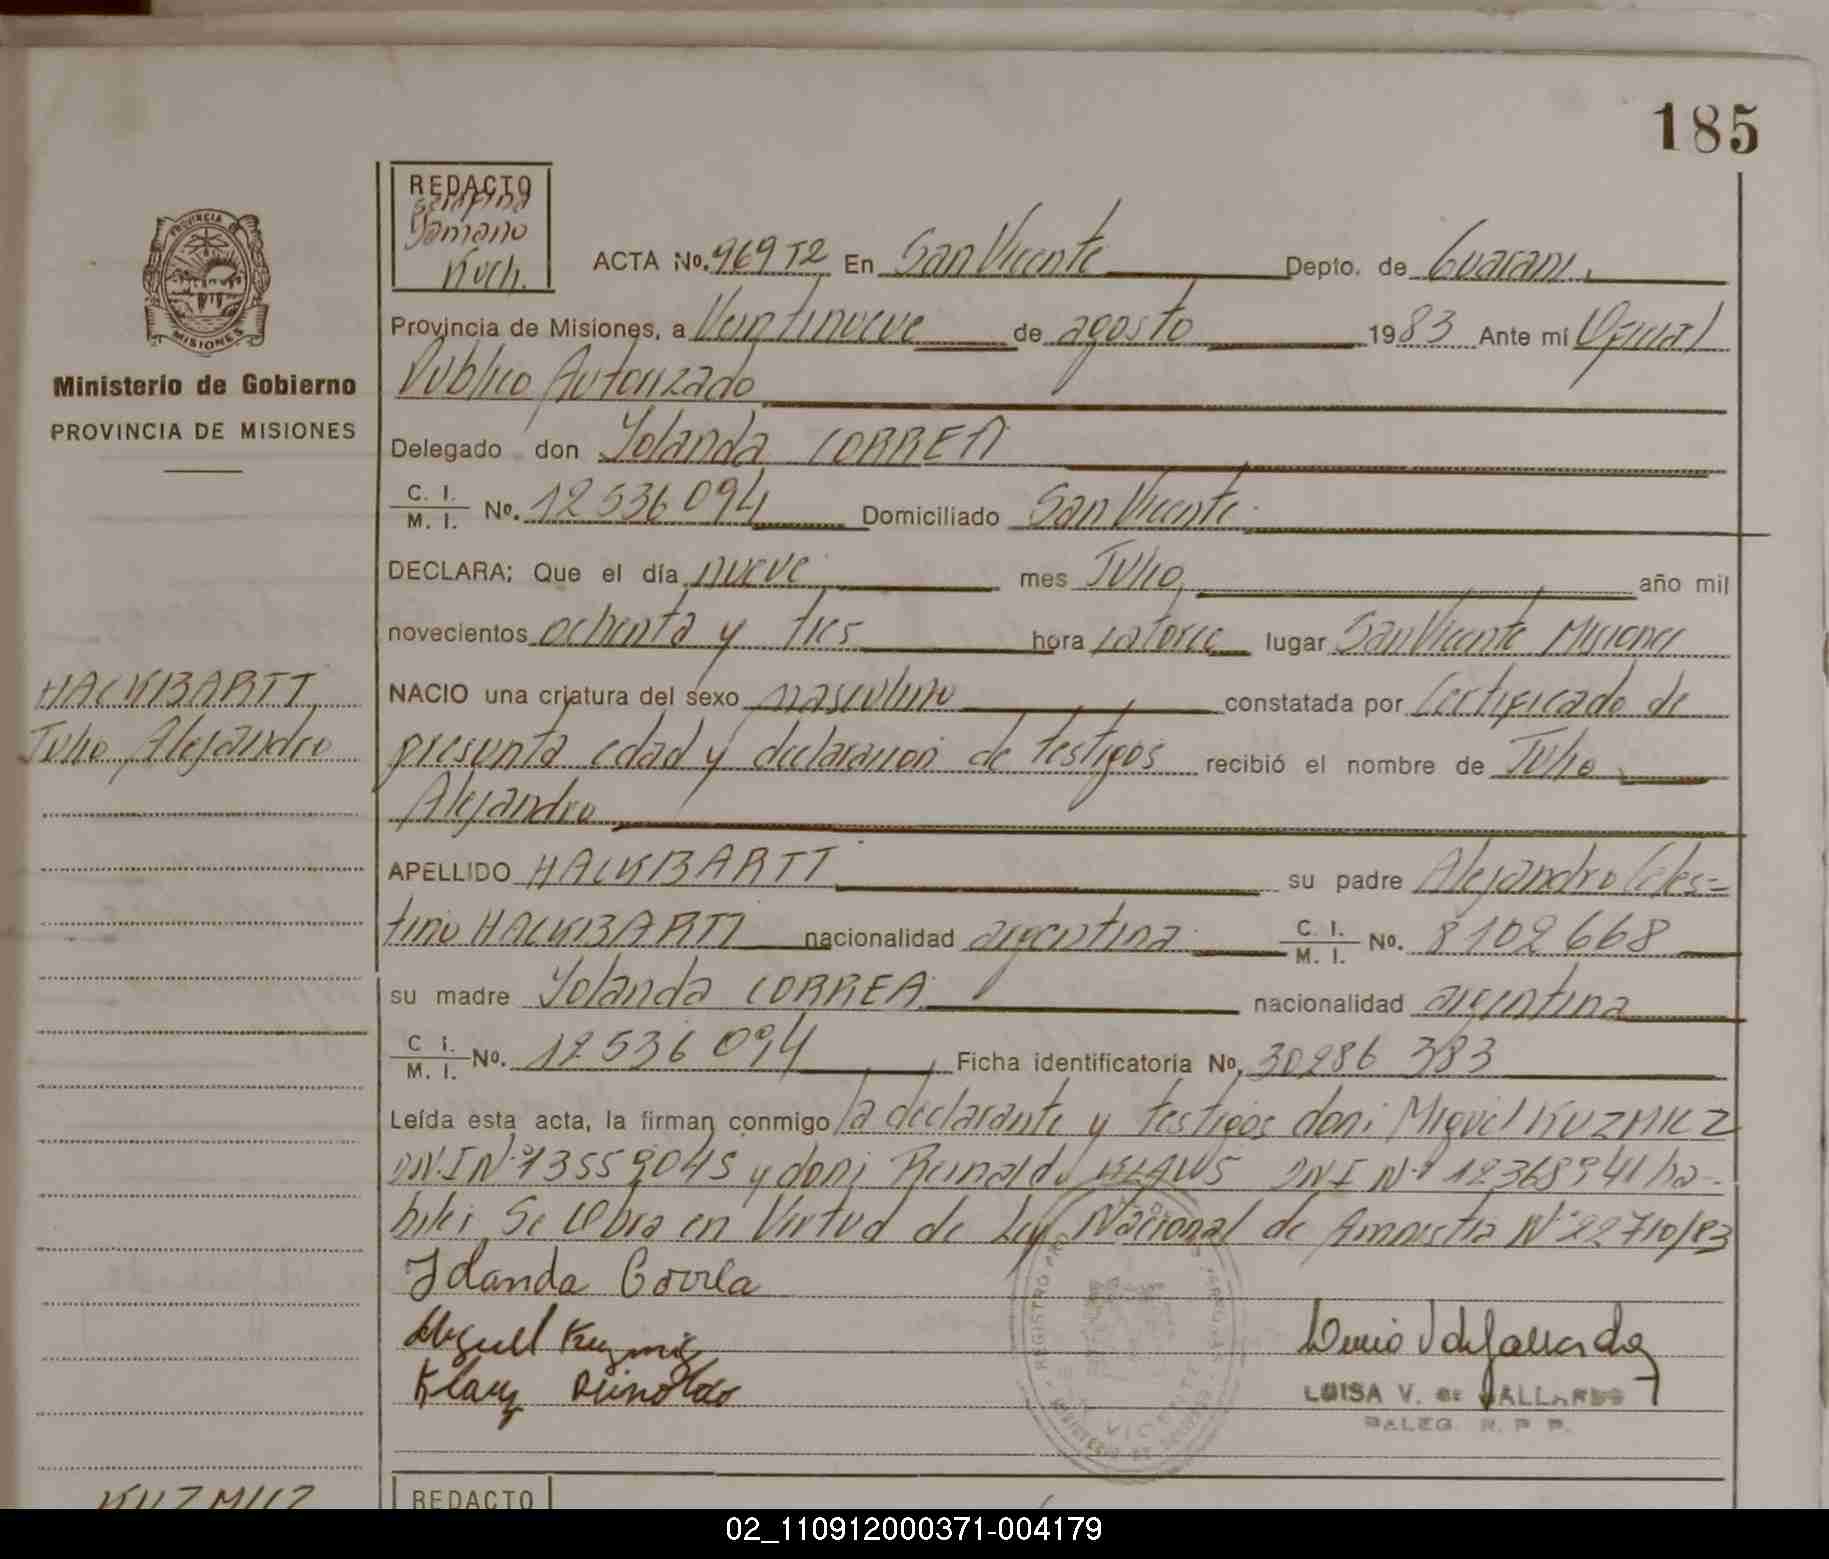 185
REDACTO
Serafina
Gamano
Koch.
ACTA No. 969 T2 En San Vicente Depto. de Guarani.
PROVINCIA
MISIONES
Provincia de Misiones, a Veintinueve de agosto 1983 Ante mí Oficial
Ministerio de Gobierno
Publico Autorizado
PROVINCIA DE MISIONES
Delegado don Yolanda CORREA
C. I. / M. I. No. 12536094 Domiciliado San Vicente.
DECLARA; Que el día nueve mes Julio, año mil
novecientos ochenta y tres hora catorce lugar San Vicente Misiones
HACKBARTT
NACIO una criatura del sexo masculino constatada por Certificado de
Julio Alejandro
presunta edad y declaracion de testigos recibió el nombre de Julio
Alejandro
APELLIDO HACKBARTT su padre Alejandro Celes=
tino HACKBARTT nacionalidad argentina. C. I. / M. I. No. 8102668
su madre Yolanda CORREA nacionalidad argentina
C i. / M. I. No. 12536094, Ficha identificatoria No, 30286 383
Leída esta acta, la firman conmigo la declarante y testigos don: Miguel KUZMICZ
DNI Nº 13559045 y don: Reinaldo KLAUS DNI Nº 12368941 ha-
biles. Se Labra en Virtud de Ley Nacional de Amnistia Nº 22710/83
Yolanda Correa
Miguel Kuzmicz
Klaus Reinoldo
LUISA V. de GALLARDO
DALEG. R. P. P.
KUZMICZ
REDACTO
02_110912000371-004179